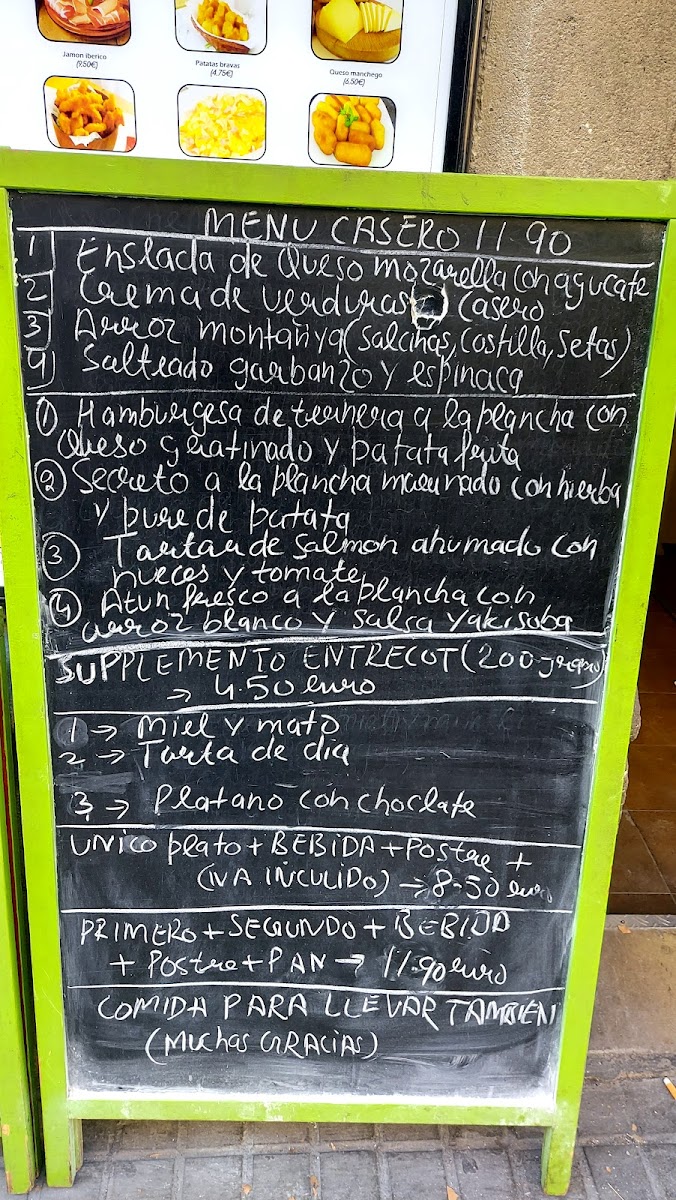 Jamon iberico
(9.50€)
Patatas bravas
(4.75€)
Queso manchego
(6.50€)
MENU CASERO 11.90
1 Enslada de Queso mozarella con agucate
2 Crema de verduras casero
3 Arroz montañya (salcihas, costilla, setas)
4 Salteado garbanzo y espinaca
1 Hamburgesa de ternera a la plancha con
queso gratinado y patata frita
2 Secreto a la plancha marinado con hierba
y pure de patata
3 Tartar de salmon ahumado con
nueces y tomate
4 Atun fresco a la plancha con
arroz blanco y salsa yakisoba
SUPPLEMENTO ENTRECOT (200 gramo)
→ 4.50 euro
1 → Miel y mato
2 → Tarta de dia
3 → Platano con choclate
UNICO plato + BEBIDA + Postre +
(IVA INCULIDO) → 8.50 euro
PRIMERO + SEGUNDO + BEBIDA
+ Postre + PAN → 11.90 euro
COMIDA PARA LLEVAR TAMBIEN
(MUCHAS GRACIAS)